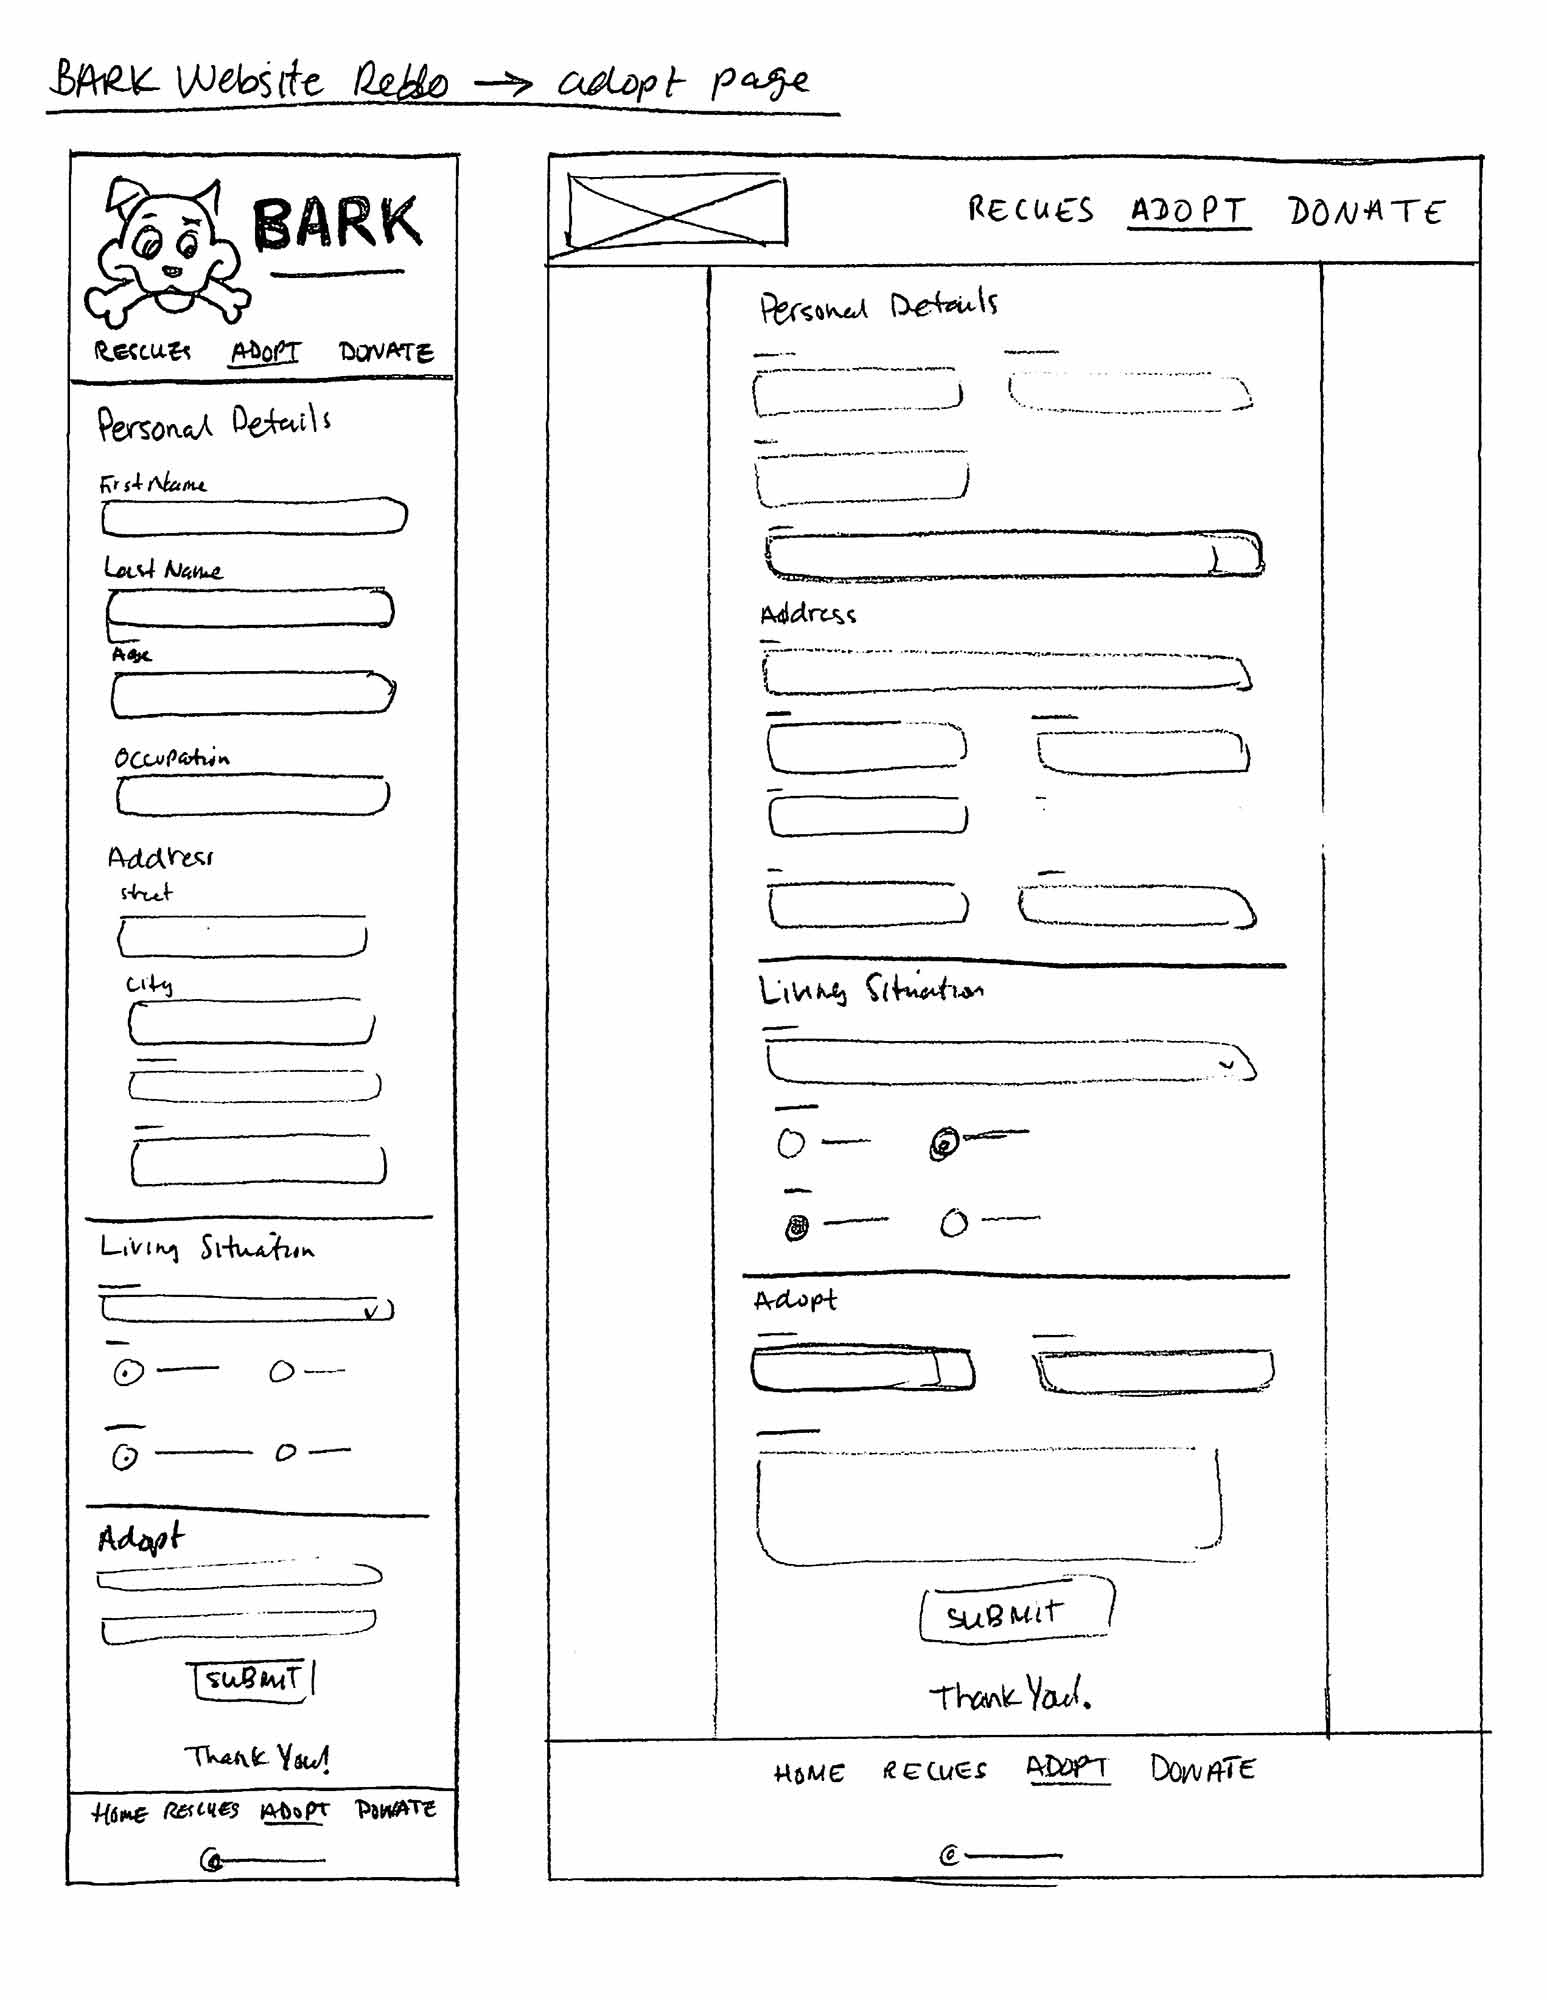 BARK Website Redo → adopt page
BARK
RESCUES ADOPT DONATE
Personal Details
First Name
Last Name
Age
Occupation
Address
Street
City
Living Situation
Adopt
SUBMIT
Thank You!
HOME RESCUES ADOPT DONATE
©
RECUES ADOPT DONATE
Personal Details
Address
Living Situation
Adopt
SUBMIT
Thank You!.
HOME RECUES ADOPT DONATE
©